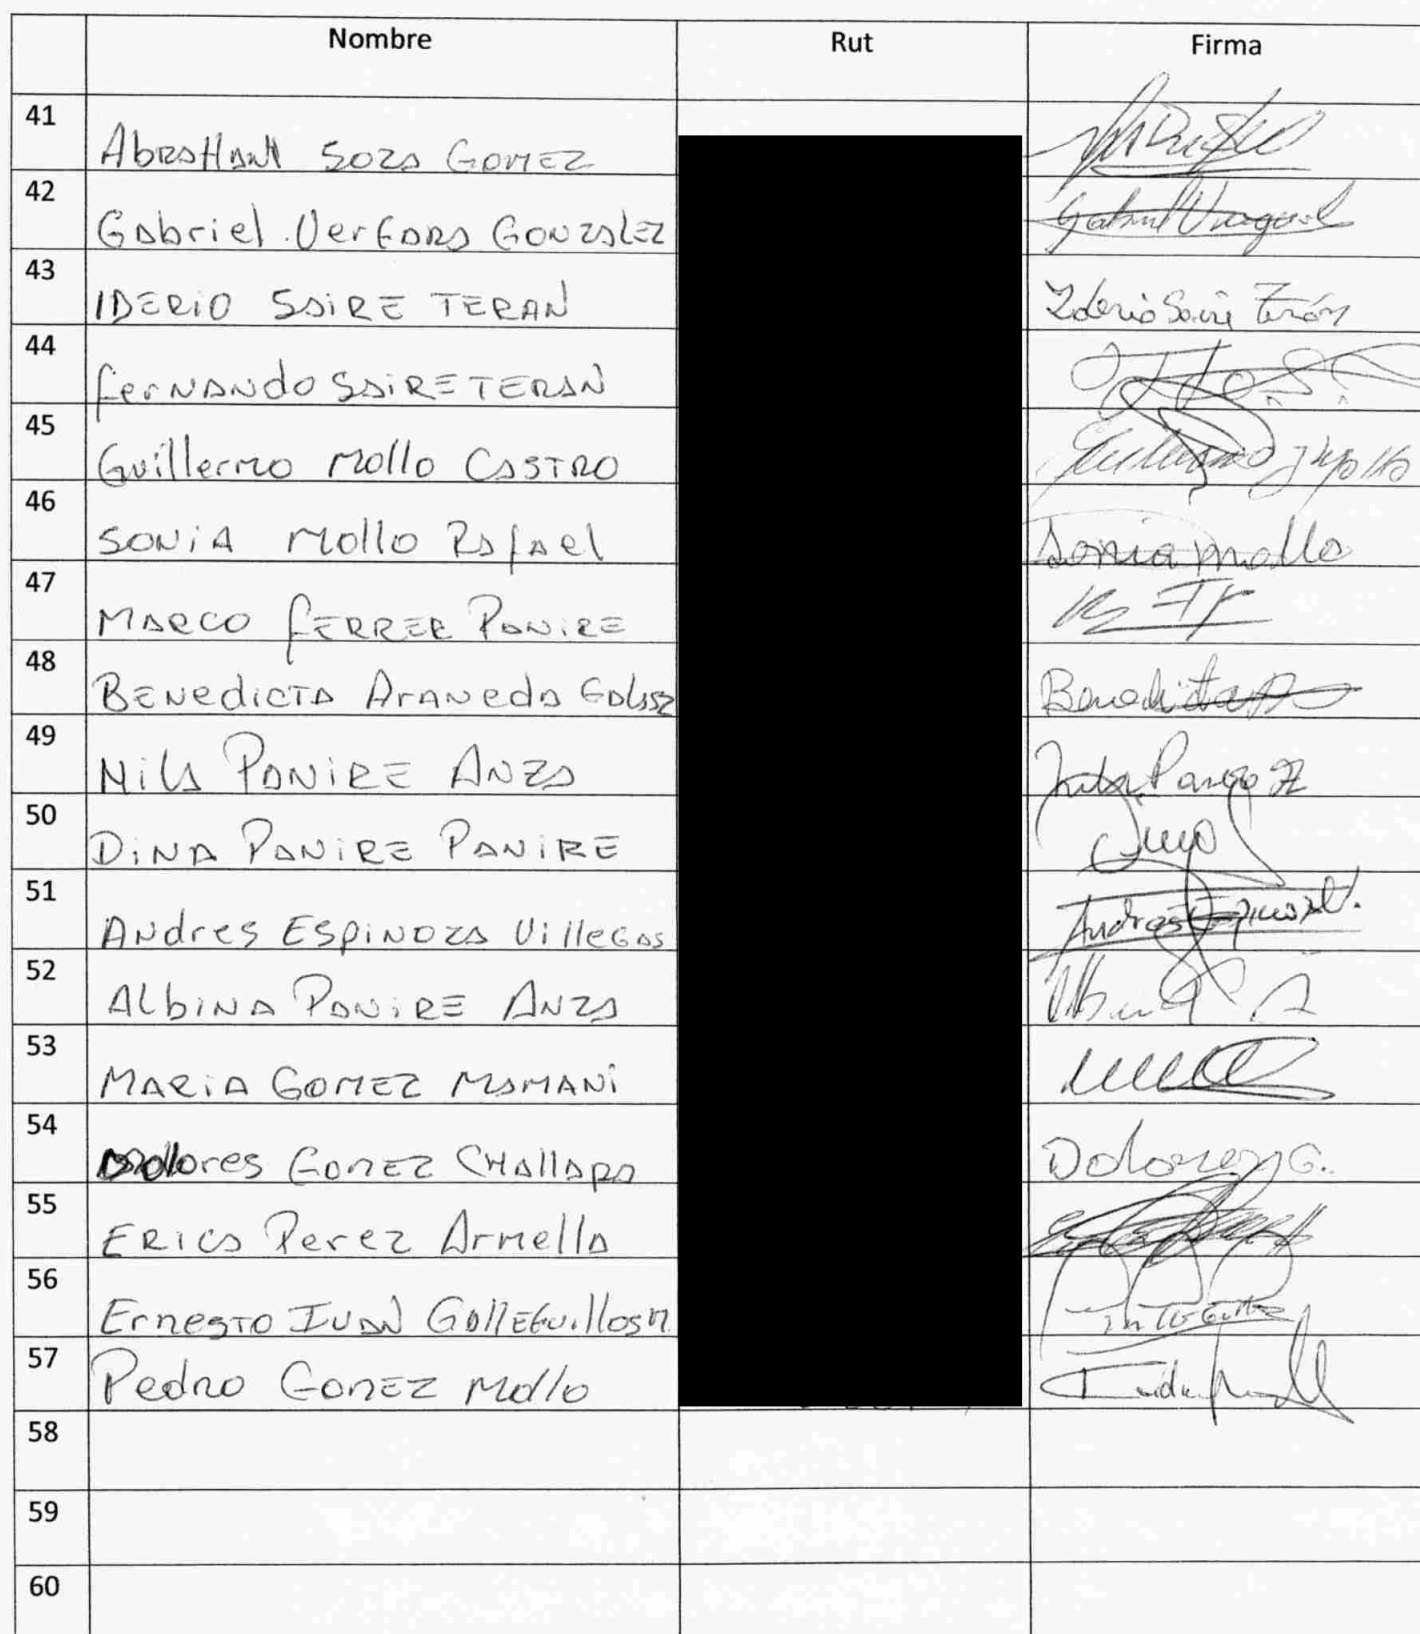 Nombre Rut Firma
41 Abraham Soza Gomez
42 Gabriel Vergara Gonzalez Gabriel Vergara
43 IDERIO SAIRE TERAN Iderio Saire Terán
44 Fernando SAIRE TERAN
45 Guillermo Mollo CASTRO Guillermo Mollo
46 SONIA Mollo Rafael Sonia mollo
47 MARCO FERRER PANIRE
48 BENedicTA ArANedA Benedicta
49 Nila PANIRE ANZA
50 DINA PANIRE PANIRE
51 Andres ESPINOZA Villegas Andres
52 AlbiNA PANIRE ANZA
53 MARIA GOMEZ MAMANI
54 Dolores GOMEZ CHAllApA Dolores G.
55 ERICA Perez Armella
56 Ernesto IVAN GAllEGuillos M.
57 Pedro GOMEZ Mollo
58
59
60